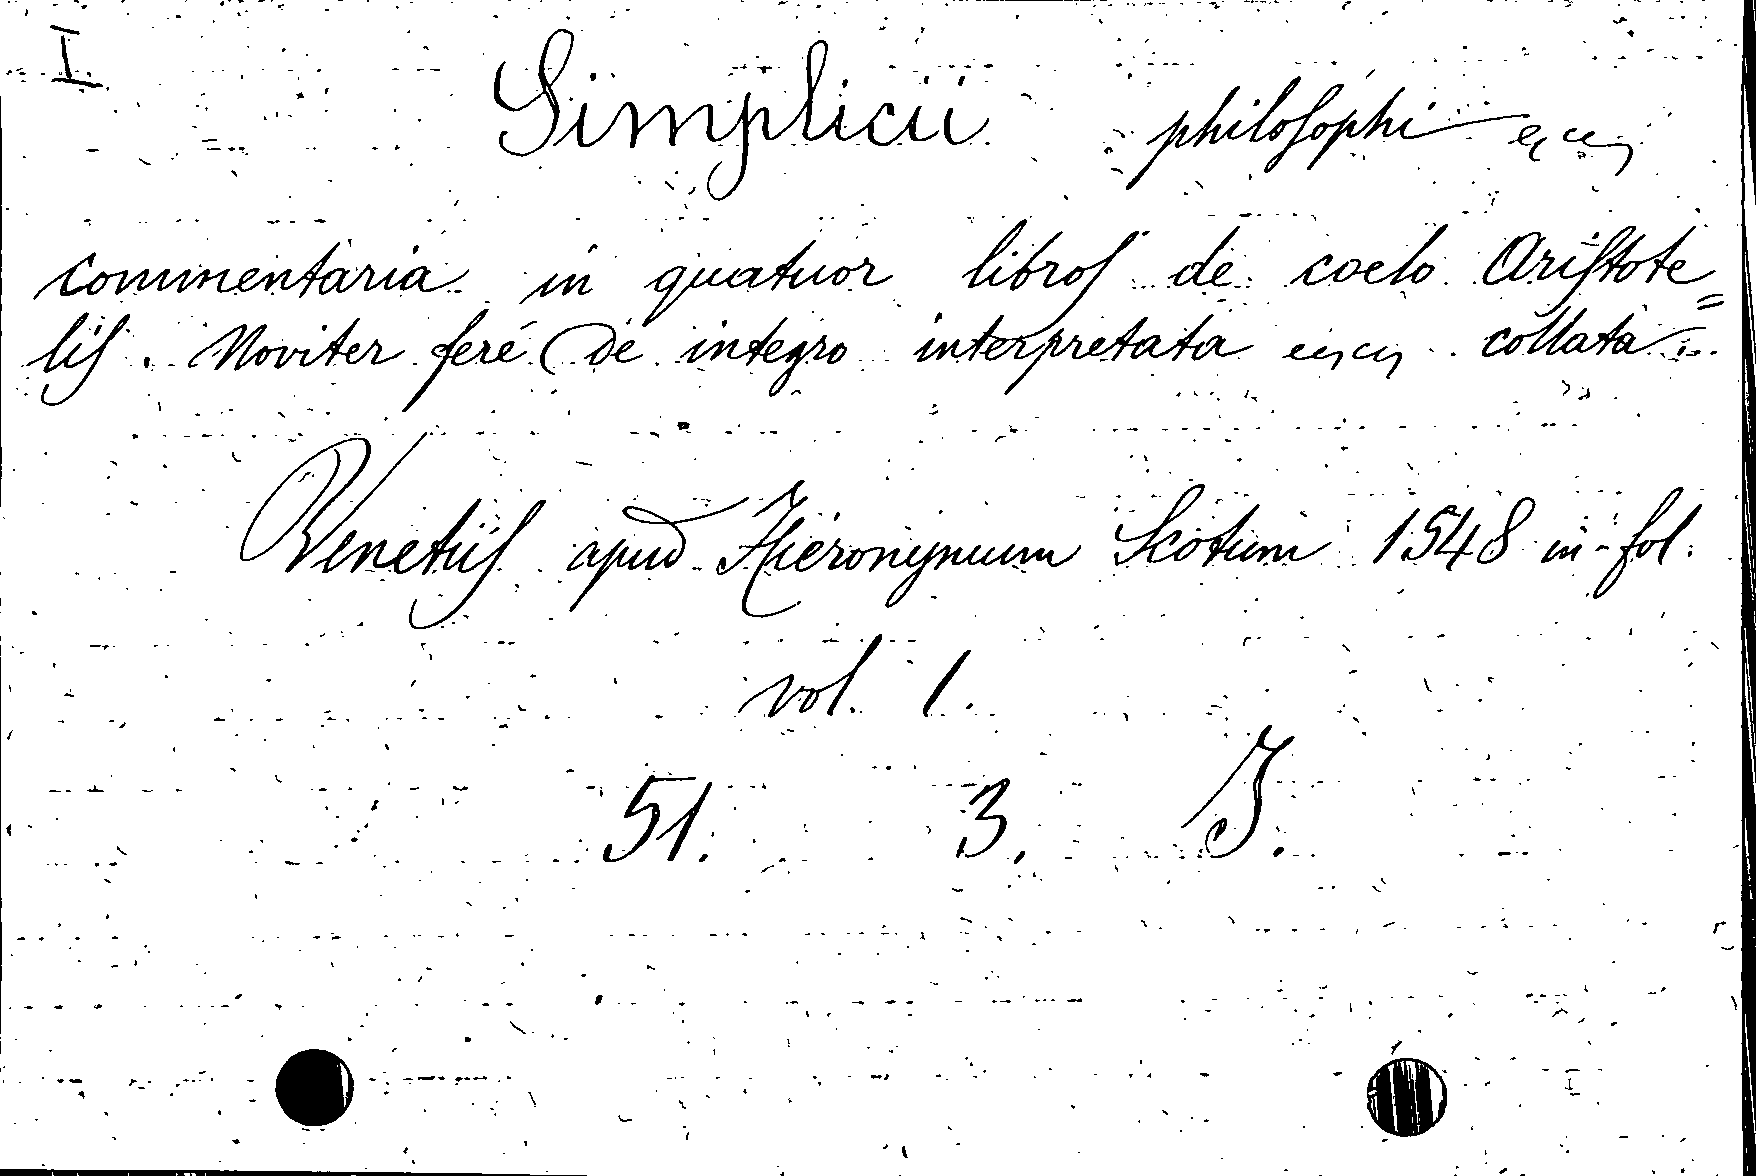 I.
Simplicii philosophi
commentaria in quatuor libros de coelo Aristote=
lis. Noviter feré de integro interpretata collata
Venetiis apud Hieronymum Scotum 1548 in-fol.
vol. 1.
51. 3. J.